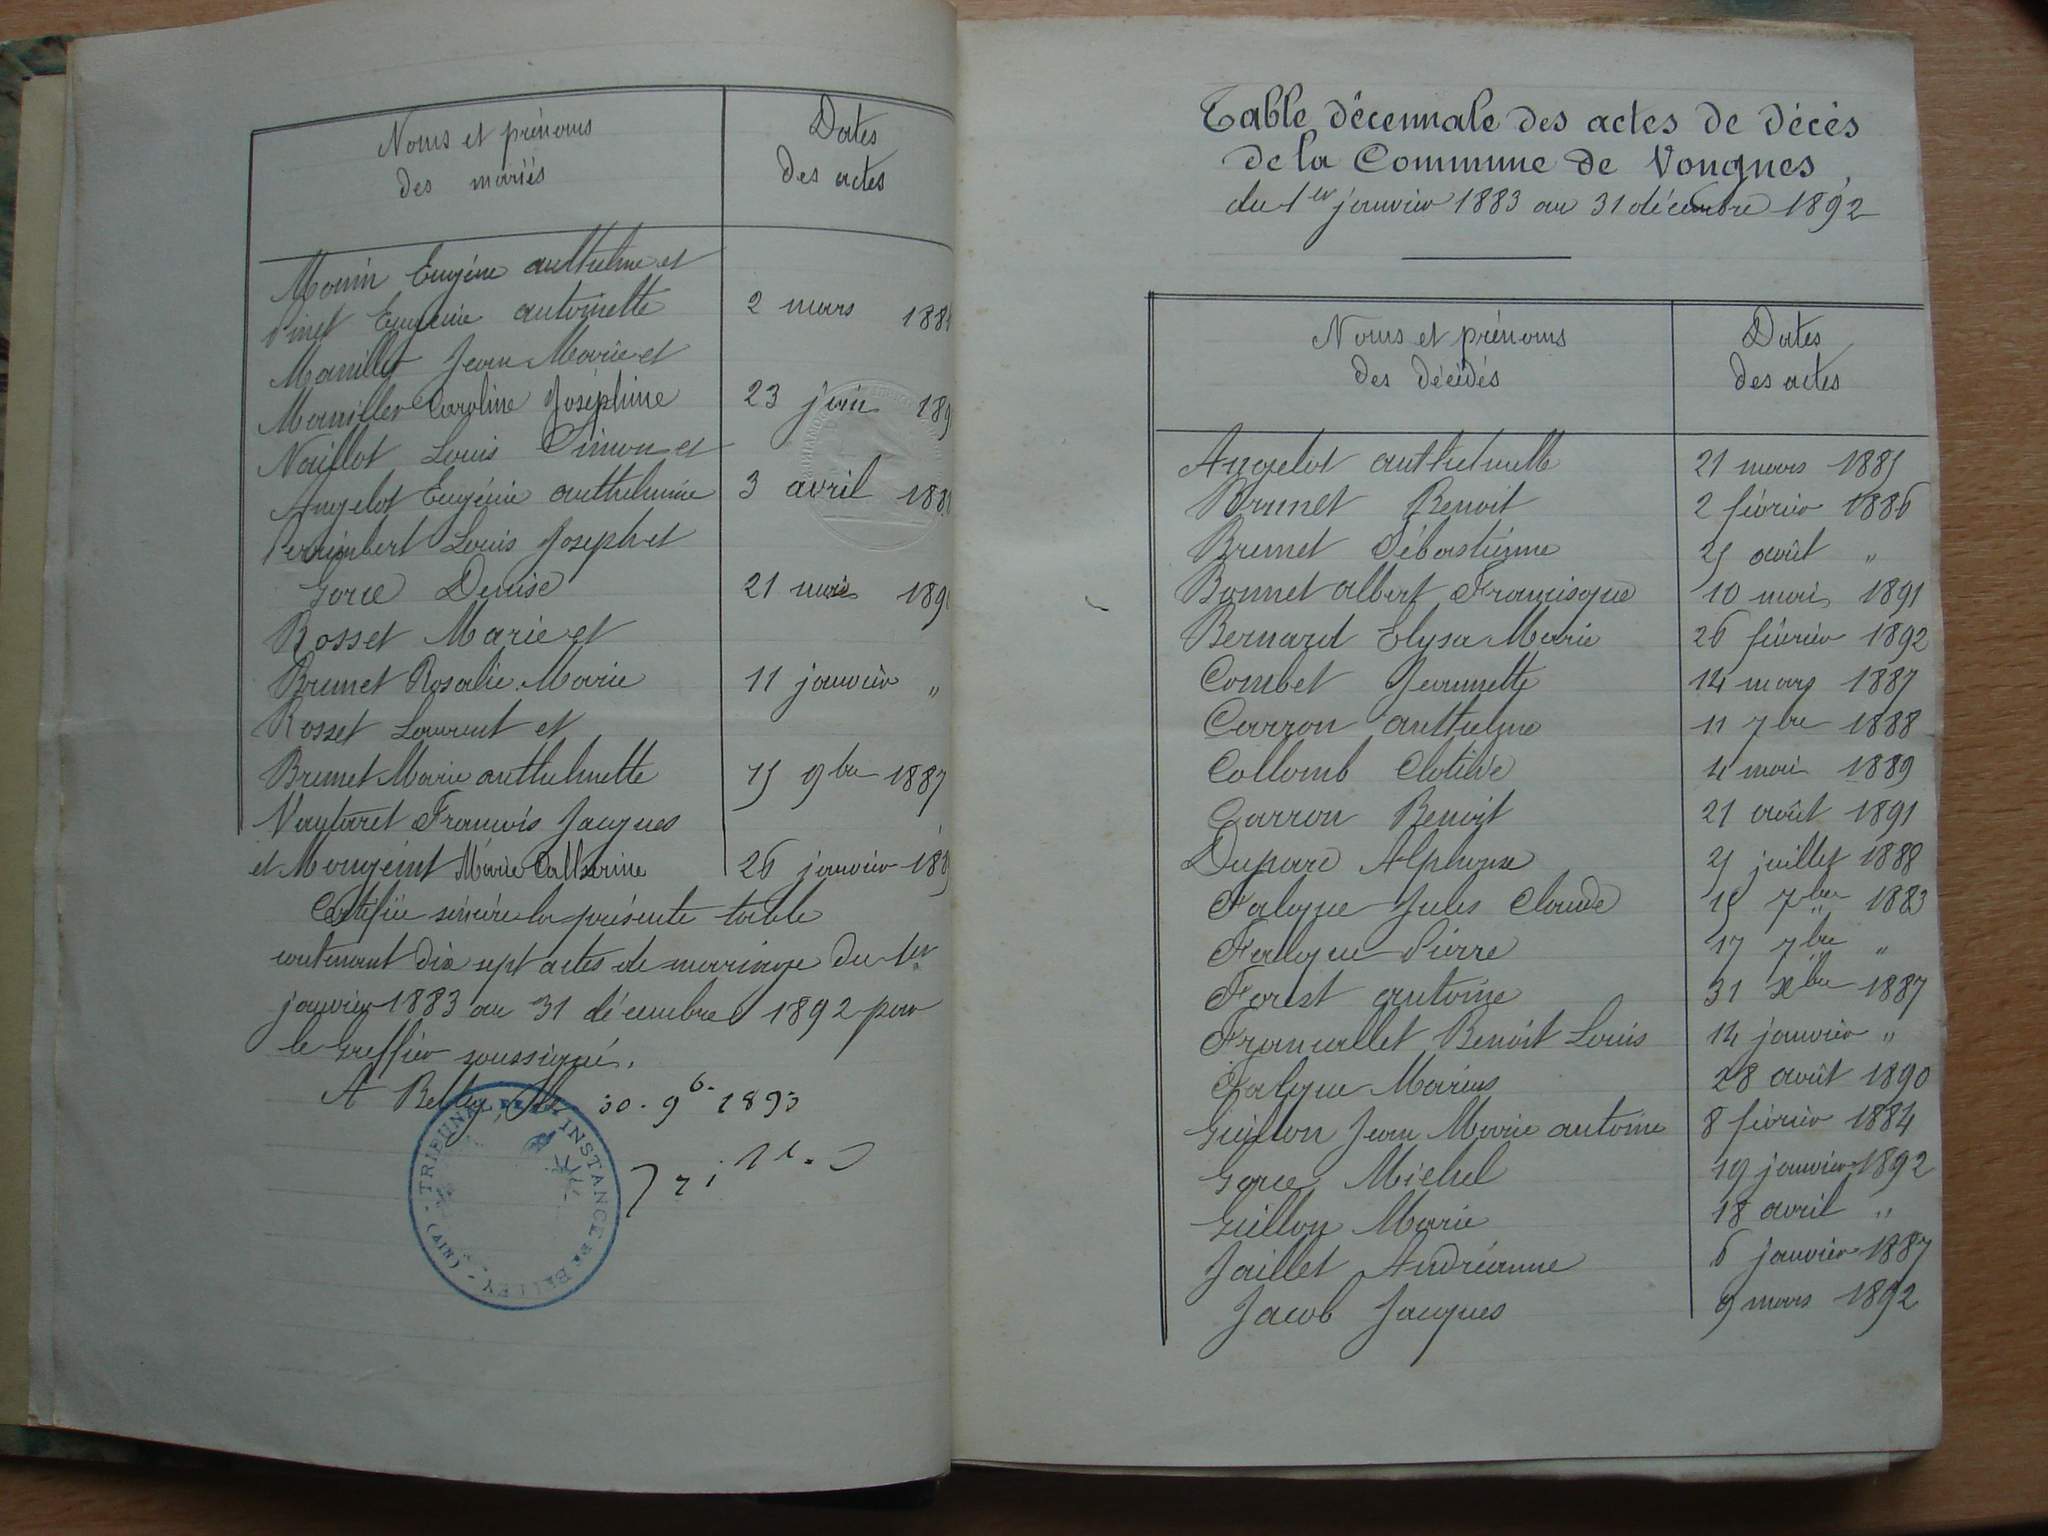 Noms et prénoms
des mariés
Dates
des actes
Monin Eugène anthelme et
Pinet Eugénie antoinette 2 mars 188
Manillet Jean Marie et
Manillet Caroline Joséphine 23 juin 189
Louis Simon et
Angelot Eugénie anthelmine 3 avril 188
Perrimbert Louis Joseph et
Gorce Denise 21 mai 189
Rosset Marie et
Brunet Rosalie Marie 11 janvier "
Rosset Laurent et
Brunet Marie anthelmette 15 9bre 1887
Vautaret François Jacques
et Mongéint Marie Catherine 26 janvier 18
Certifiée sincère la présente table
contenant dix sept actes de mariage du 1er
janvier 1883 au 31 décembre 1892 par
le Greffier soussigné.
A Belley, le 30. 9b. 1893
TRIBUNAL INSTANCE DE BELLEY - (AIN) -
Table décennale des actes de décès
de la Commune de Vongnes,
du 1er janvier 1883 au 31 décembre 1892
Noms et prénoms
des décédés
Dates
des actes
Angelot anthelmette 21 mars 1885
Brunet Benoit 2 février 1886
Brunet Sébastienne 25 août "
Bonnet albert Francisque 10 mai 1891
Bernard Elysa Marie 26 février 1892
Combet Jeannette 14 mars 1887
Carron anthelme 11 7bre 1888
Collomb Clotilde 4 mai 1889
Carron Benoit 21 août 1891
Duparc Alphonse 25 juillet 1888
Falque Jules Claude 15 7bre 1883
Falque Pierre 17 7bre "
Forest antoine 31 xbre 1887
Francallet Benoit Louis 14 janvier "
Falque Marius 28 août 1890
Guillon Jean Marie antoine 8 février 1884
Gorce Michel 19 janvier 1892
Guillon Marie 18 avril "
Jaillet Andréanne 6 janvier 1887
Jacob Jacques 9 mars 1892